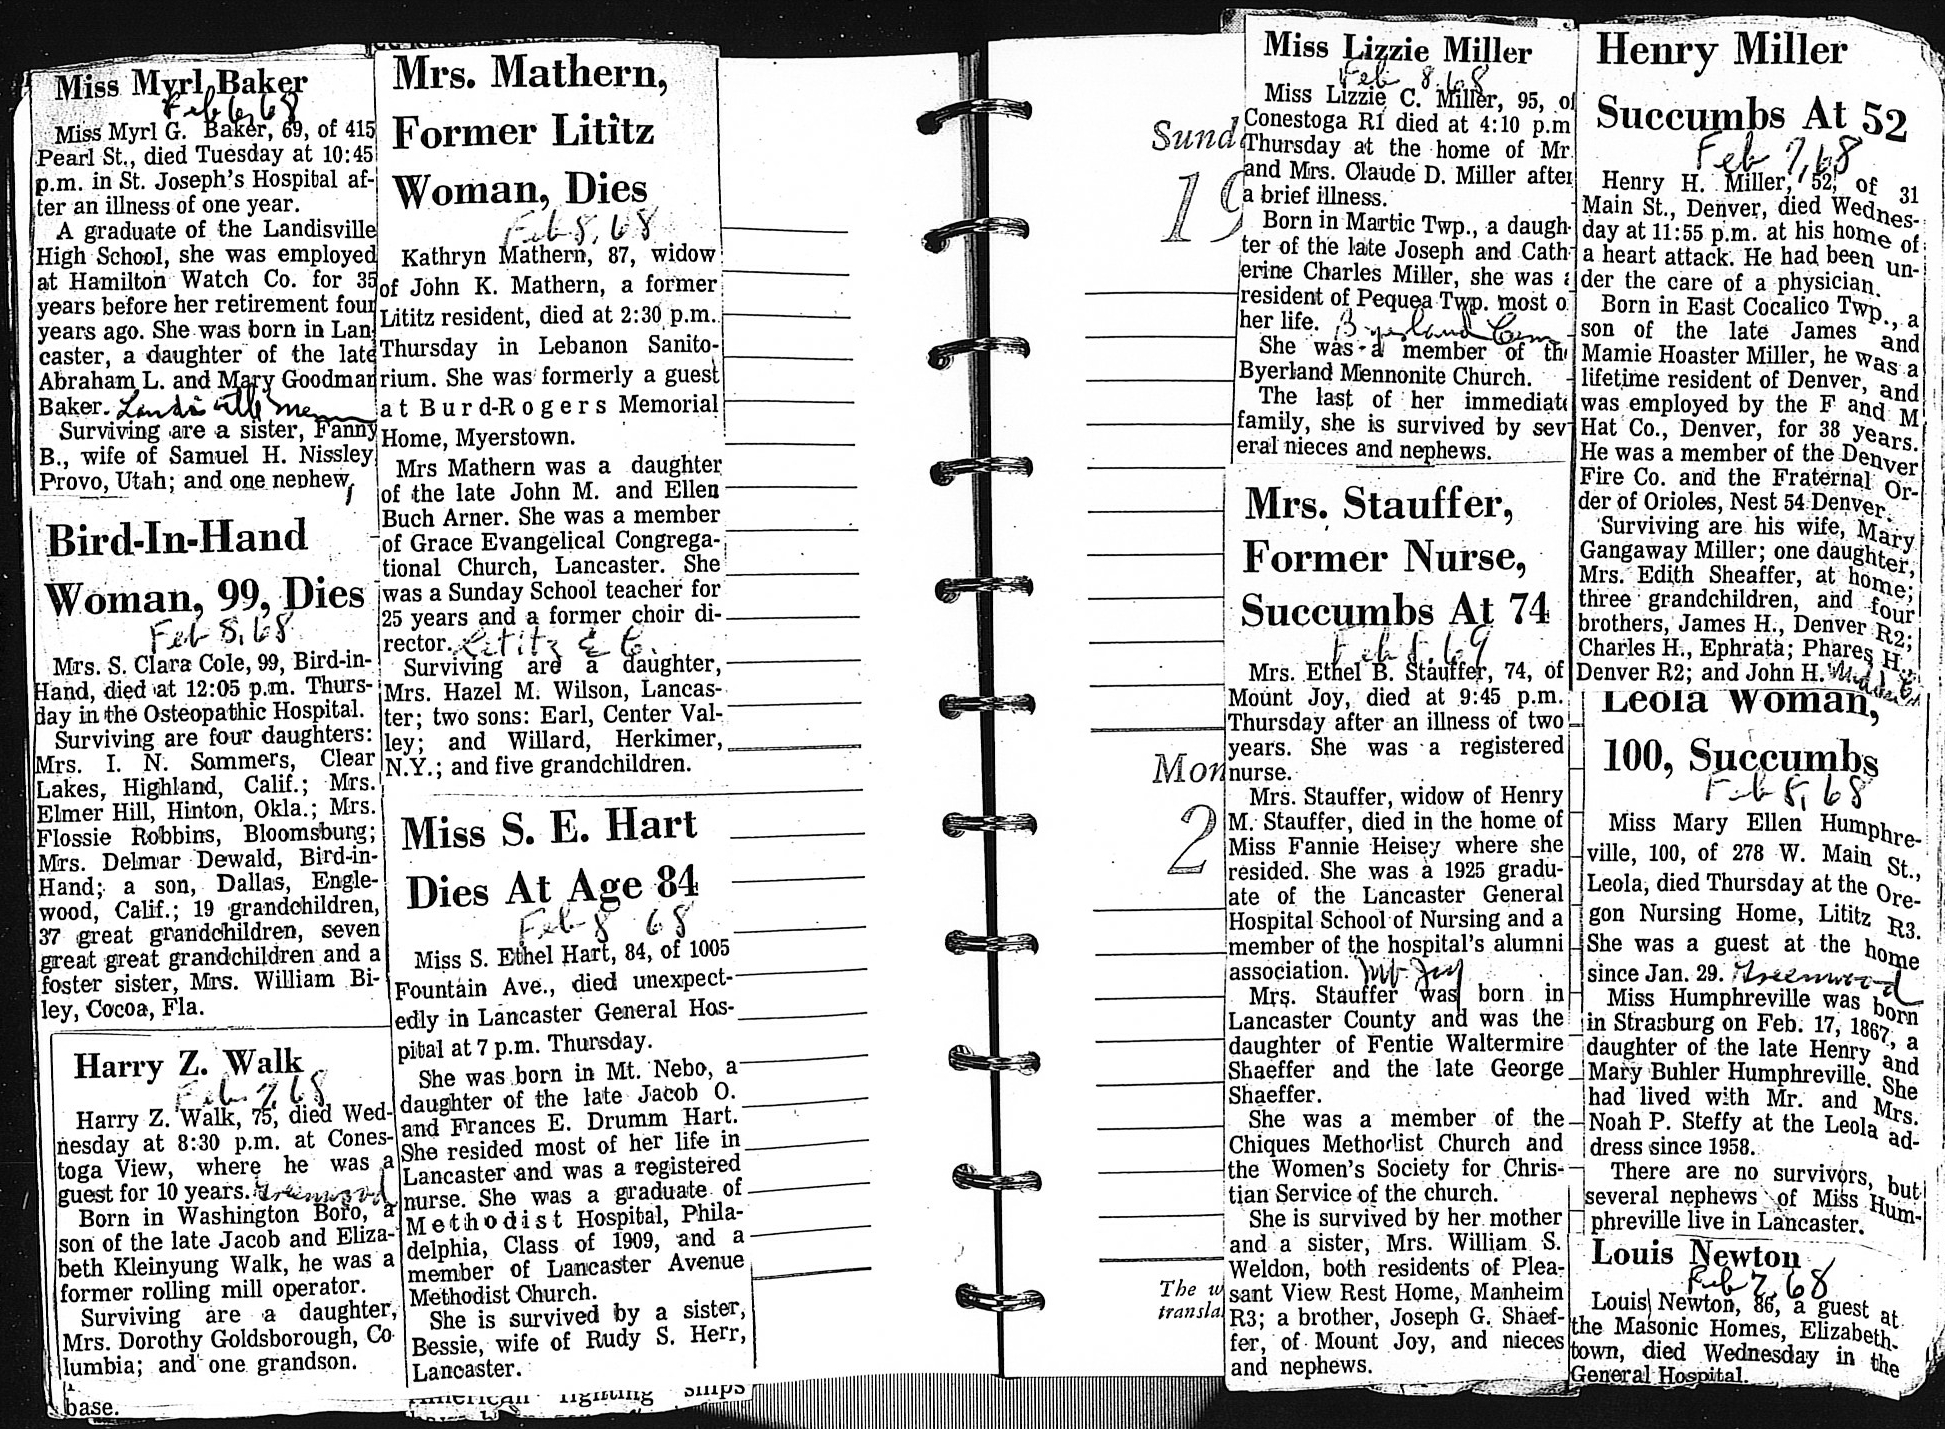 Miss Myrl Baker
Feb 6, 68
Miss Myrl G. Baker, 69, of 415
Pearl St., died Tuesday at 10:45
p.m. in St. Joseph's Hospital af-
ter an illness of one year.
A graduate of the Landisville
High School, she was employed
at Hamilton Watch Co. for 35
years before her retirement four
years ago. She was born in Lan
caster, a daughter of the late
Abraham L. and Mary Goodman
Baker. Landisville Menn
Surviving are a sister, Fanny
B., wife of Samuel H. Nissley
Provo, Utah; and one nephew,
Bird-In-Hand
Woman, 99, Dies
Feb 8, 68
Mrs. S. Clara Cole, 99, Bird-in-
Hand, died at 12:05 p.m. Thurs-
day in the Osteopathic Hospital.
Surviving are four daughters:
Mrs. I. N. Sommers, Clear
Lakes, Highland, Calif.; Mrs.
Elmer Hill, Hinton, Okla.; Mrs.
Flossie Robbins, Bloomsburg;
Mrs. Delmar Dewald, Bird-in-
Hand; a son, Dallas, Engle-
wood, Calif.; 19 grandchildren,
37 great grandchildren, seven
great great grandchildren and a
foster sister, Mrs. William Bi-
ley, Cocoa, Fla.
Harry Z. Walk
Feb 7, 68
Harry Z. Walk, 75, died Wed-
nesday at 8:30 p.m. at Cones-
toga View, where he was a
guest for 10 years. Greenwood
Born in Washington Boro, a
son of the late Jacob and Eliza-
beth Kleinyung Walk, he was a
former rolling mill operator.
Surviving are a daughter,
Mrs. Dorothy Goldsborough, Co
lumbia; and one grandson.
base.
Mrs. Mathern,
Former Lititz
Woman, Dies
Feb 8, 68
Kathryn Mathern, 87, widow
of John K. Mathern, a former
Lititz resident, died at 2:30 p.m.
Thursday in Lebanon Sanito-
rium. She was formerly a guest
at Burd-Rogers Memorial
Home, Myerstown.
Mrs Mathern was a daughter
of the late John M. and Ellen
Buch Arner. She was a member
of Grace Evangelical Congrega-
tional Church, Lancaster. She
was a Sunday School teacher for
25 years and a former choir di-
rector. Lititz E C.
Surviving are a daughter,
Mrs. Hazel M. Wilson, Lancas-
ter; two sons: Earl, Center Val-
ley; and Willard, Herkimer,
N.Y.; and five grandchildren.
Miss S. E. Hart
Dies At Age 84
Feb 8 68
Miss S. Ethel Hart, 84, of 1005
Fountain Ave., died unexpect-
edly in Lancaster General Hos-
pital at 7 p.m. Thursday.
She was born in Mt. Nebo, a
daughter of the late Jacob O.
and Frances E. Drumm Hart.
She resided most of her life in
Lancaster and was a registered
nurse. She was a graduate of
Methodist Hospital, Phila-
delphia, Class of 1909, and a
member of Lancaster Avenue
Methodist Church.
She is survived by a sister,
Bessie, wife of Rudy S. Herr,
Lancaster.
American fighting ships
Sund
19
Mon
2
The w
transla
Miss Lizzie Miller
Feb 8, 68
Miss Lizzie C. Miller, 95, of
Conestoga R1 died at 4:10 p.m
Thursday at the home of Mr.
and Mrs. Claude D. Miller after
a brief illness.
Born in Martic Twp., a daugh-
ter of the late Joseph and Cath-
erine Charles Miller, she was a
resident of Pequea Twp. most o
her life. Byerland Cem
She was a member of the
Byerland Mennonite Church.
The last of her immediate
family, she is survived by sev-
eral nieces and nephews.
Mrs. Stauffer,
Former Nurse,
Succumbs At 74
Feb 8, 69
Mrs. Ethel B. Stauffer, 74, of
Mount Joy, died at 9:45 p.m.
Thursday after an illness of two
years. She was a registered
nurse.
Mrs. Stauffer, widow of Henry
M. Stauffer, died in the home of
Miss Fannie Heisey where she
resided. She was a 1925 gradu-
ate of the Lancaster General
Hospital School of Nursing and a
member of the hospital's alumni
association. Mt Joy
Mrs. Stauffer was born in
Lancaster County and was the
daughter of Fentie Waltermire
Shaeffer and the late George
Shaeffer.
She was a member of the
Chiques Methodist Church and
the Women's Society for Chris-
tian Service of the church.
She is survived by her mother
and a sister, Mrs. William S.
Weldon, both residents of Plea-
sant View Rest Home, Manheim
R3; a brother, Joseph G. Shaef-
fer, of Mount Joy, and nieces
and nephews.
Henry Miller
Succumbs At 52
Feb 7, 68
Henry H. Miller, 52, of 31
Main St., Denver, died Wednes-
day at 11:55 p.m. at his home of
a heart attack. He had been un-
der the care of a physician.
Born in East Cocalico Twp., a
son of the late James and
Mamie Hoaster Miller, he was a
lifetime resident of Denver, and
was employed by the F and M
Hat Co., Denver, for 38 years.
He was a member of the Denver
Fire Co. and the Fraternal Or-
der of Orioles, Nest 54 Denver.
Surviving are his wife, Mary
Gangaway Miller; one daughter,
Mrs. Edith Sheaffer, at home;
three grandchildren, and four
brothers, James H., Denver R2;
Charles H., Ephrata; Phares H.,
Denver R2; and John H.
Leola Woman,
100, Succumbs
Feb 8, 68
Miss Mary Ellen Humphre-
ville, 100, of 278 W. Main St.,
Leola, died Thursday at the Ore-
gon Nursing Home, Lititz R3.
She was a guest at the home
since Jan. 29. Greenwood
Miss Humphreville was born
in Strasburg on Feb. 17, 1867, a
daughter of the late Henry and
Mary Buhler Humphreville. She
had lived with Mr. and Mrs.
Noah P. Steffy at the Leola ad-
dress since 1958.
There are no survivors, but
several nephews of Miss Hum-
phreville live in Lancaster.
Louis Newton
Feb 7, 68
Louis Newton, 86, a guest at
the Masonic Homes, Elizabeth-
town, died Wednesday in the
General Hospital.